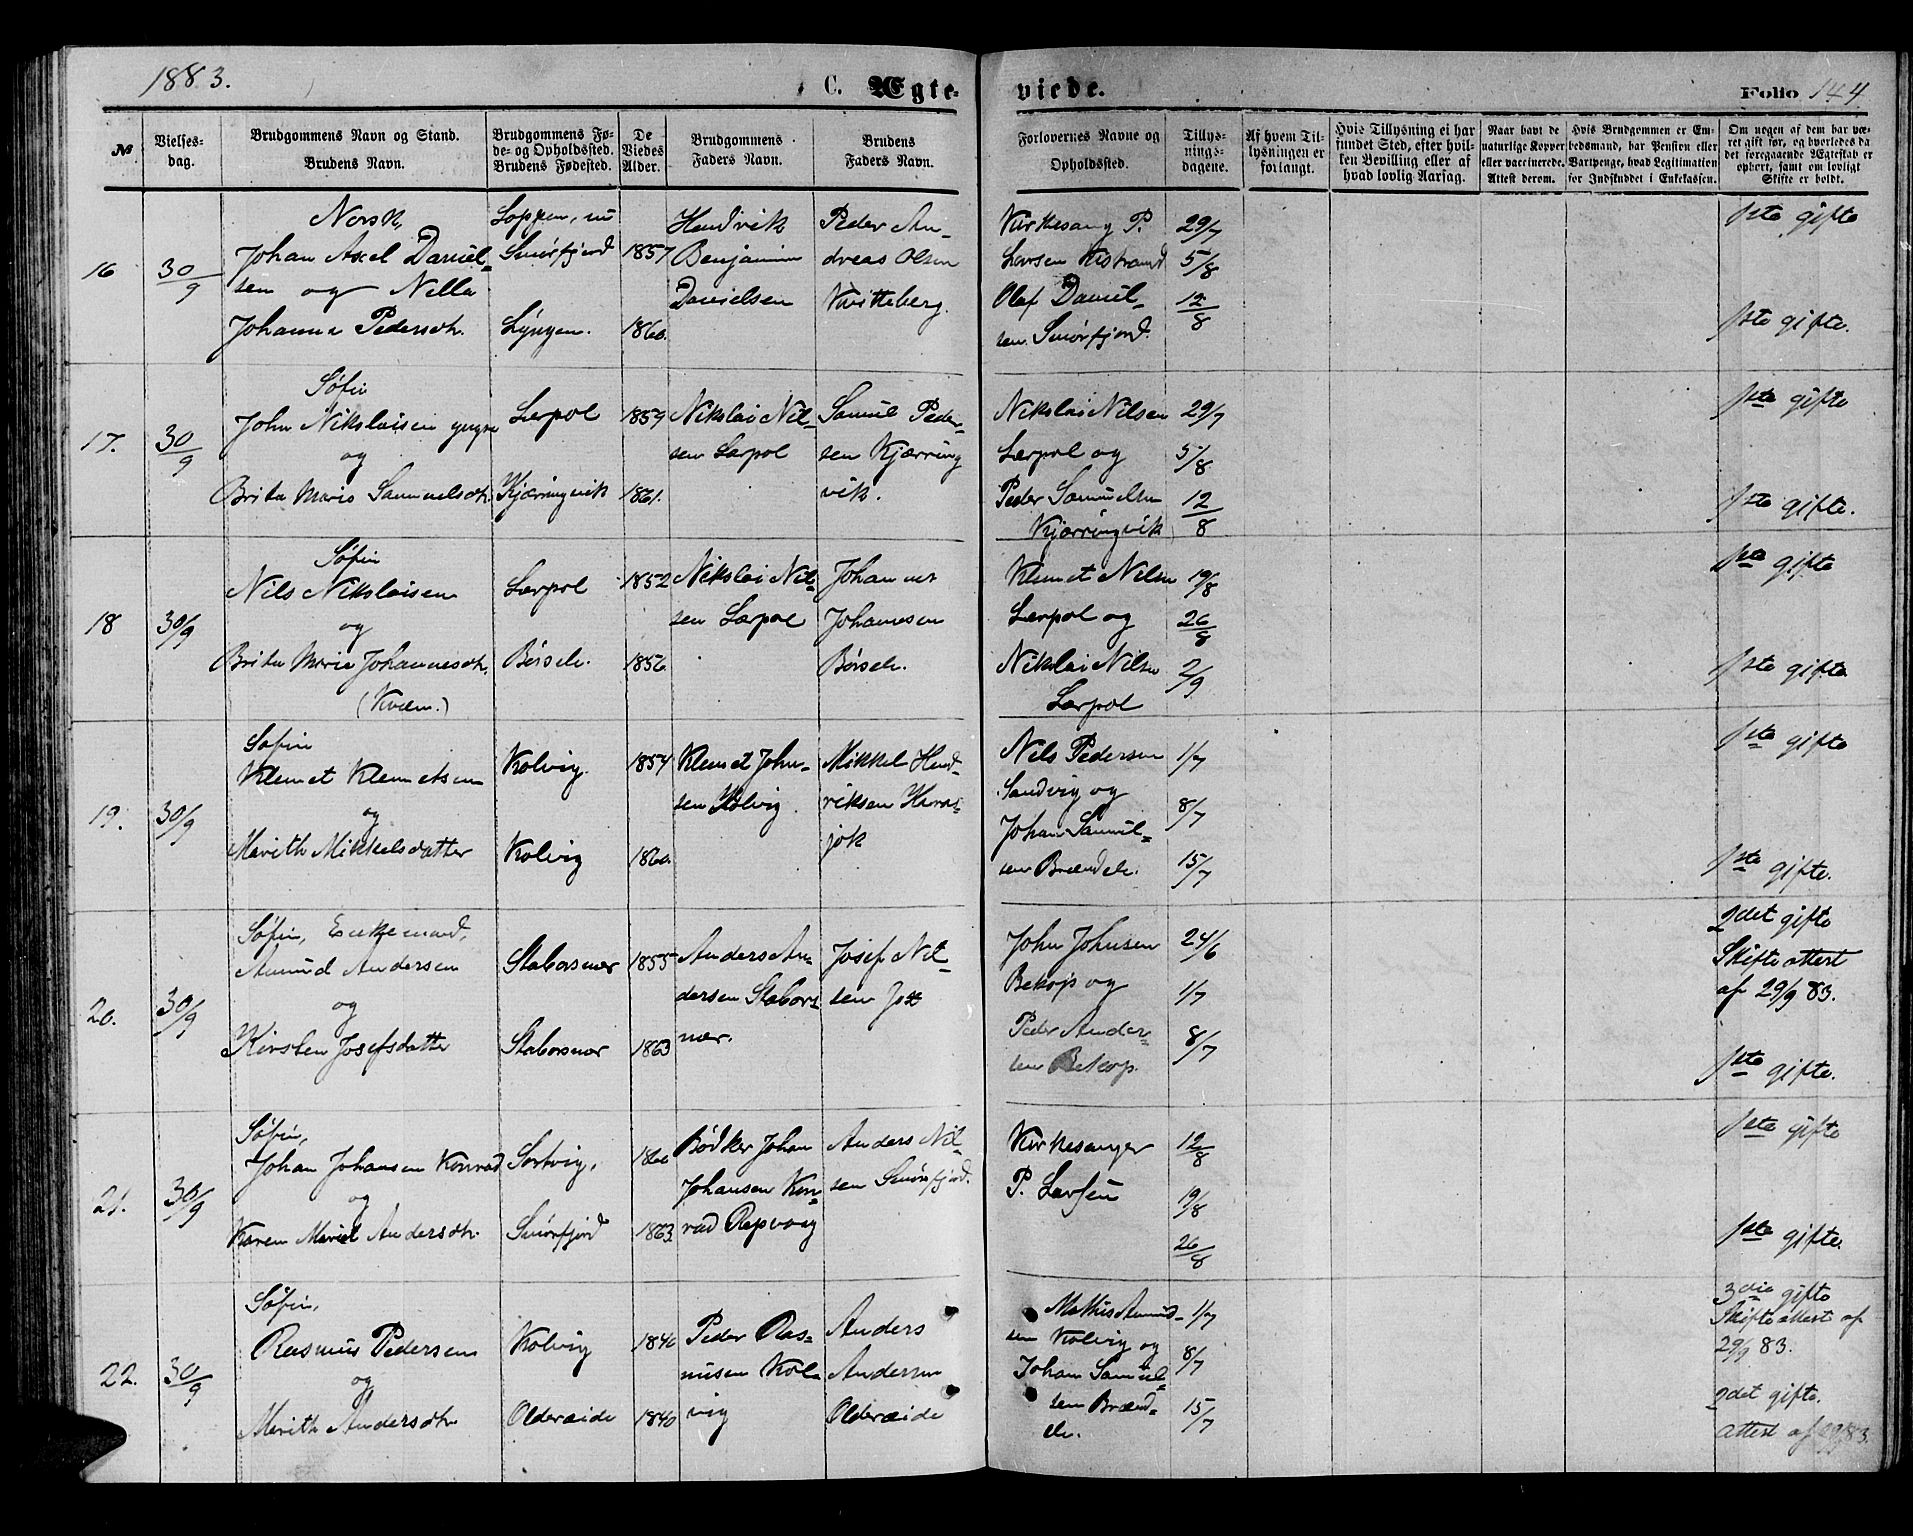 1883.
C. Ægteviede.
Folio 144
№
Vielsesdag.
Brudgommens Navn og Stand.
Brudens Navn.
Brudgommens Føde- og Opholdssted.
Brudens Fødested.
De Viedes Alder.
Brudgommens Faders Navn.
Brudens Faders Navn.
Forlovernes Navne og Opholdssted.
Tillysningsdagene.
Af hvem Tillysningen er forlangt.
Hvis Tillysning ei har fundet Sted, efter hvilken Bevilling eller af hvad lovlig Aarsag.
Naar havt de naturlige Kopper eller vaccinerede. Attest derom.
Hvis Brudgommen er Embedsmand, har Pension eller Vartpenge, hvad Legitimation for Indskuddet i Enkekassen.
Om nogen af dem har været gift før, og hvorledes da det foregaaende Ægteskab er ophørt, samt om lovligt Skifte er holdt.
16
30/9
Norsk,
Johan Axel Daniel-
sen og Nilla
Johanna Pedersdtr.
Loppen, nu
Smørfjord
Lyngen.
1857
1860.
Hendrik
Benjamin
Danielsen
Peder An-
dreas Olsen
Kvitteberg.
Kirkesang. P.
Larsen Kistrand
Olaf Daniel-
sen Smørfjord.
29/7
5/8
12/8
1ste gifte
1ste gifte.
17.
30/9
Søfin
John Nikolaisen yngre
og
Brita Maria Samuelsdtr.
Lerpol
Kjærringvik
1859
1861.
Nikolai Nil-
sen Lerpol
Samuel Peder-
sen Kjærring
vik.
Nikolai Nilsen
Lerpol og
Peder Samuelsen
Kjærringvik
29/7
5/8
12/8
1ste gifte
1ste gifte.
18
30/9
Søfin
Nils Nikolaisen
og
Brita Marie Johannesdtr.
(Kvæn.)
Lerpol
Børsele.
1852
1856.
Nikolai Nil-
sen Lerpol
Johannes
Johannesen
Børsele.
Klemet Nilsen
Lerpol og
Nikolai Nilsen
Lerpol
19/8
26/8
2/9
1ste gifte
1ste gifte
19.
30/9
Søfin
Klemet Klemetsen
og
Marith Mikkelsdatter
Kolvig.
Kolvig
1854
1860.
Klemet John-
sen Kolvig.
Mikkel Hend-
riksen Karas-
jok
Nils Pedersen
Sandvig og
Johan Samuel-
sen Brændele.
1/7
8/7
15/7
1ste gifte
1ste gifte.
20.
30/9
Søfin, Enkemand,
Amund Andersen
og
Kirsten Josefsdatter
Staborsnær
Staborsnær
1855
1863
Anders An-
dersen Stabors-
nær.
Josef Nil-
sen
John Johnsen
Bekop og
Peder Ander-
sen Bekop.
24/6
1/7
8/7
2det gifte
Skifteattest
af 29/9 83.
1ste gifte.
21.
30/9
Søfin,
Johan Johansen Konrad
og
Karen Maret Andersdtr.
Sortvig,
Smørfjord
1860
1863.
Bødker Johan
Johansen Kon-
rad Repvaag
Anders Nil-
sen Smørfjord.
Kirkesanger
P. Larsen
12/8
19/8
26/8
1ste gifte
1ste gifte.
22.
30/9
Søfin,
Rasmus Pedersen
og
Marith Andersdtr.
Kolvig
Olderøide
1840
1840
Peder Ras-
musen Kol-
vig
Anders
Andersen
Olderøide
Mathis Amund-
sen Kolvig og
Johan Samuel-
sen Brænd-
ele.
1/7
8/7
15/7
3die gifte
Skifteattest af
29/9 83.
2det gifte.
attest af 29/9 83.